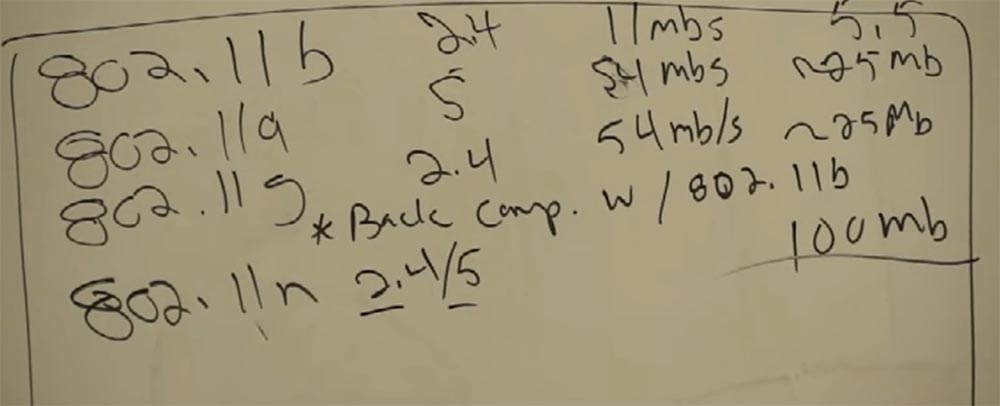 802.11b 2.4 11mbs 5.5
802.11a 5 54mbs ~25mb
802.11g 2.4 54mb/s ~25Mb
* Back Comp. w/802.11b
802.11n 2.4/5 100mb